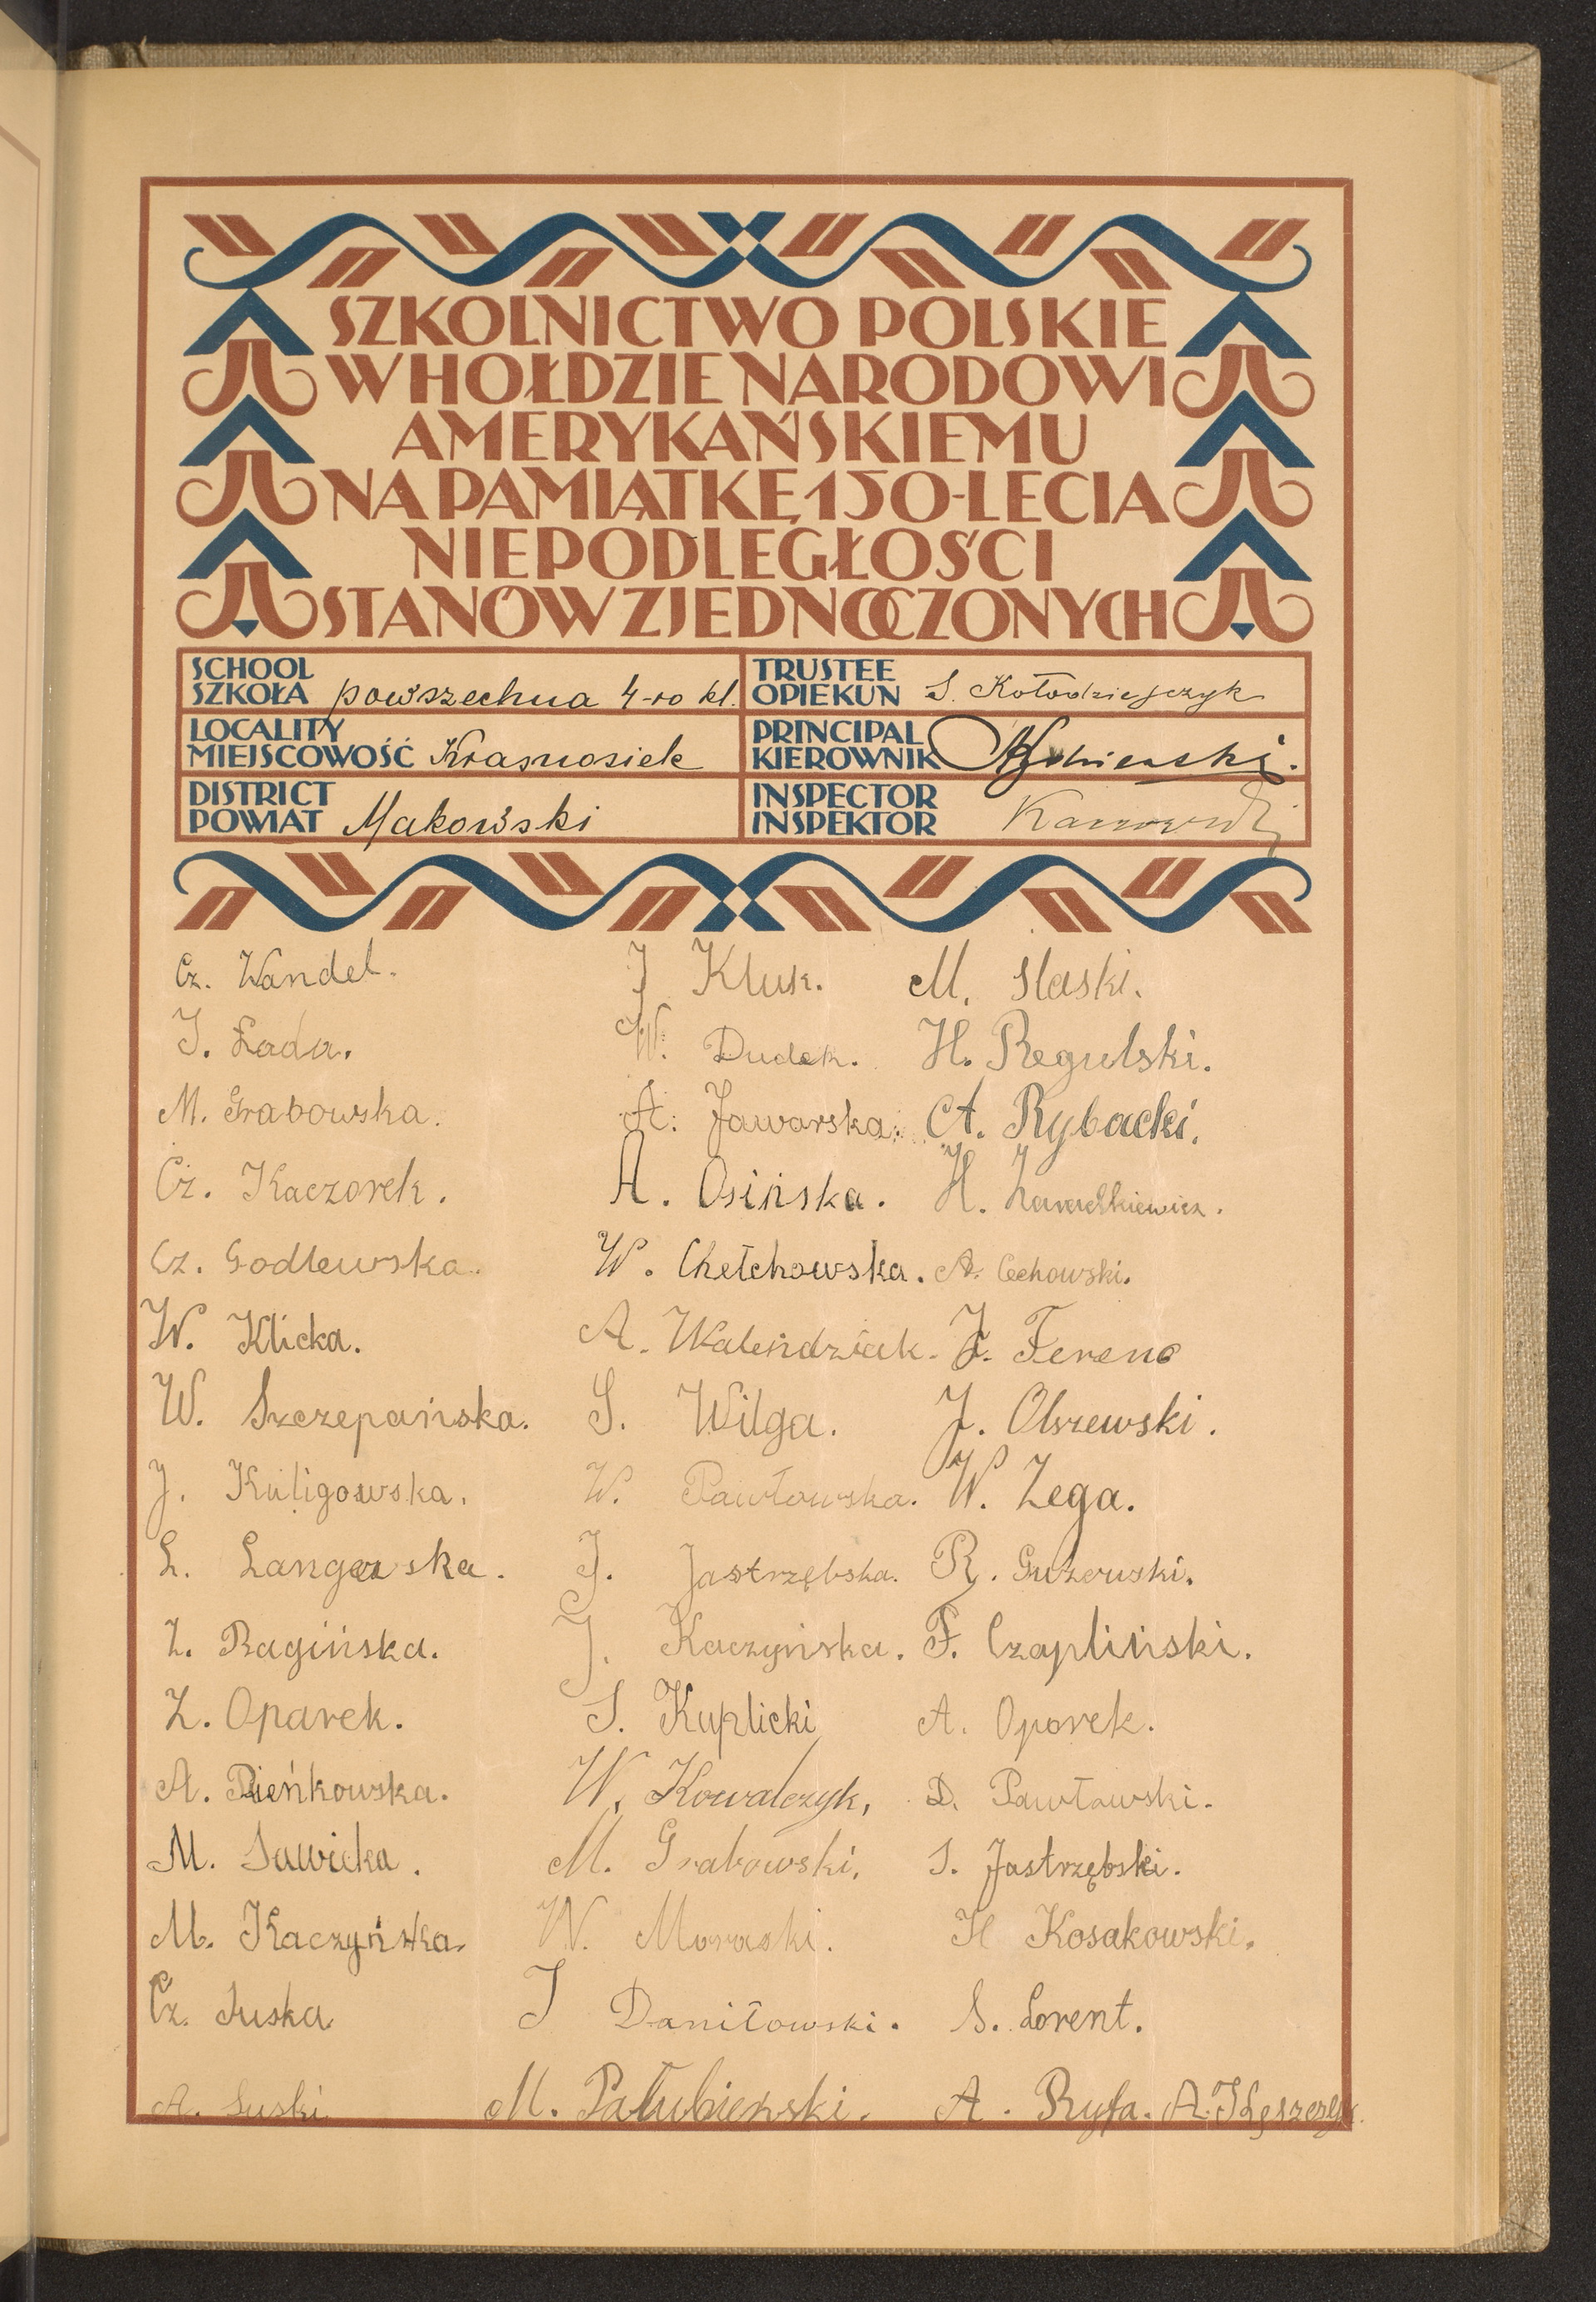 SZKOLNICTWO POLSKIE
W HOŁDZIE NARODOWI
AMERYKAŃSKIEMU
NA PAMIĄTKĘ 150-LECIA
NIEPODLEGŁOŚCI
STANÓW ZJEDNOCZONYCH
SCHOOL
SZKOŁA powszechna 4-ro kl.
TRUSTEE
OPIEKUN S. Kołodziejczyk
LOCALITY
MIEJSCOWOŚĆ Krasnosielc
PRINCIPAL
KIEROWNIK
DISTRICT
POWIAT Makowski
INSPECTOR
INSPEKTOR
Cz. Wandel. J Kluk. M. Slaski.
J. Łada. W. Dudek. H. Regulski.
M. Grabowska. A. Jaworska. A. Rybacki.
Cz. Kaczorek. A. Osińska. H.
Cz. Godlewska. W. Chełchowska. A. Cechowski.
W. Klicka. A. Walendziak. J. Ferenc
W. Szczepańska. S. Wilga. J. Olszewski.
J. Kuligowska. W. Pawłowska. W. Zega.
L. Langowska. J. Jastrzębska. R. Guzowski.
Z. Ragińska. J. Kaczyńska. F. Czapliński.
Z. Oparek. S. Kuplicki A. Oporek.
A. Pieńkowska. W. Kowalczyk, D. Pawłowski.
M. Sawicka. M. Grabowski. S. Jastrzębski.
M. Kaczyńska. W. Moraski. H Kosakowski.
Cz. Suska J Daniłowski. S. Lorent.
A. Suski M. Pałubieński. A. Ryfa. A.